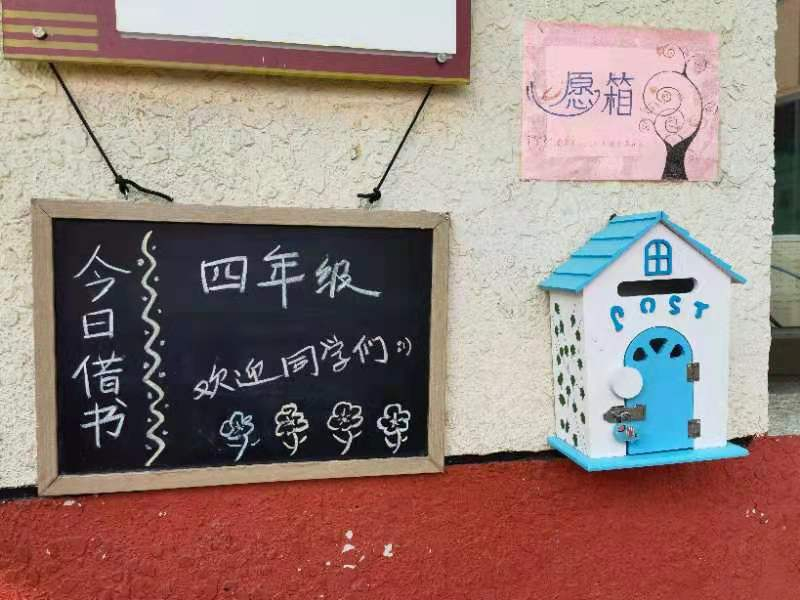 今日借书
四年级
欢迎同学们:)
心愿箱
POST